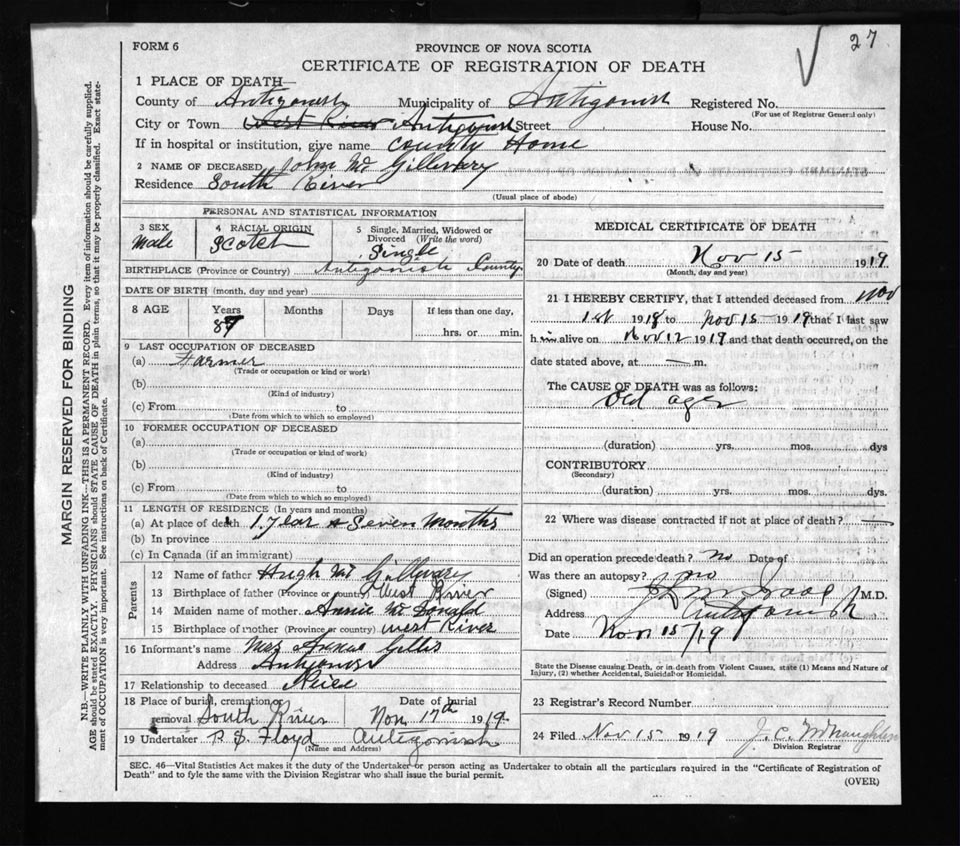 27
FORM 6
PROVINCE OF NOVA SCOTIA
CERTIFICATE OF REGISTRATION OF DEATH
1 PLACE OF DEATH—
County of Antigonish Municipality of Antigonish Registered No.
(For use of Registrar General only)
City or Town West River Antigonish Street House No.
If in hospital or institution, give name County Home
2 NAME OF DECEASED John Mc Gillivary
Residence South River
(Usual place of abode)
PERSONAL AND STATISTICAL INFORMATION
3 SEX Male
4 RACIAL ORIGIN Scotch
5 Single, Married, Widowed or Divorced (Write the word) Single
BIRTHPLACE (Province or Country) Antigonish County
DATE OF BIRTH (month, day and year)
8 AGE Years Months Days If less than one day,
87 hrs. or min.
9 LAST OCCUPATION OF DECEASED
(a) Farmer
(Trade or occupation or kind or work)
(b)
(Kind of industry)
(c) From to
(Date from which to which so employed)
10 FORMER OCCUPATION OF DECEASED
(a)
(Trade or occupation or kind of work)
(b)
(Kind of industry)
(c) From to
(Date from which to which so employed)
11 LENGTH OF RESIDENCE (In years and months)
(a) At place of death 1 year & Seven Months
(b) In province
(c) In Canada (if an immigrant)
Parents
12 Name of father Hugh Mc Gillivary
13 Birthplace of father (Province or country) West River
14 Maiden name of mother Annie Mc Donald
15 Birthplace of mother (Province or country) West River
16 Informant's name Mrs Angus Gillis
Address Antigonish
17 Relationship to deceased Niece
18 Place of burial, cremation or removal South River
Date of burial Nov 17th 1919
19 Undertaker Floyd Antigonish
(Name and Address)
MEDICAL CERTIFICATE OF DEATH
20 Date of death Nov 15 1919
(Month, day and year)
21 I HEREBY CERTIFY, that I attended deceased from Nov
1st 1918 to Nov 15 1919 that I last saw
him alive on Nov 12 1919 and that death occurred, on the
date stated above, at — m.
The CAUSE OF DEATH was as follows:
Old age
(duration) yrs. mos. dys
CONTRIBUTORY
(Secondary)
(duration) yrs. mos. dys.
22 Where was disease contracted if not at place of death? —
Did an operation precede death? no Date of
Was there an autopsy? no
(Signed) M.D.
Address Antigonish
Date Nov 15/19
State the Disease causing Death, or in death from Violent Causes, state (1) Means and Nature of
Injury, (2) whether Accidental, Suicidal or Homicidal.
23 Registrar's Record Number
24 Filed Nov 15 1919 J. C. McNaughton
Division Registrar
SEC. 46—Vital Statistics Act makes it the duty of the Undertaker or person acting as Undertaker to obtain all the particulars required in the "Certificate of Registration of
Death" and to fyle the same with the Division Registrar who shall issue the burial permit.
(OVER)
MARGIN RESERVED FOR BINDING
N.B.—WRITE PLAINLY WITH UNFADING INK—THIS IS A PERMANENT RECORD. Every item of information should be carefully supplied.
AGE should be stated EXACTLY. PHYSICIANS should STATE CAUSE OF DEATH in plain terms, so that it may be properly classified. Exact state-
ment of OCCUPATION is very important. See instructions on back of Certificate.